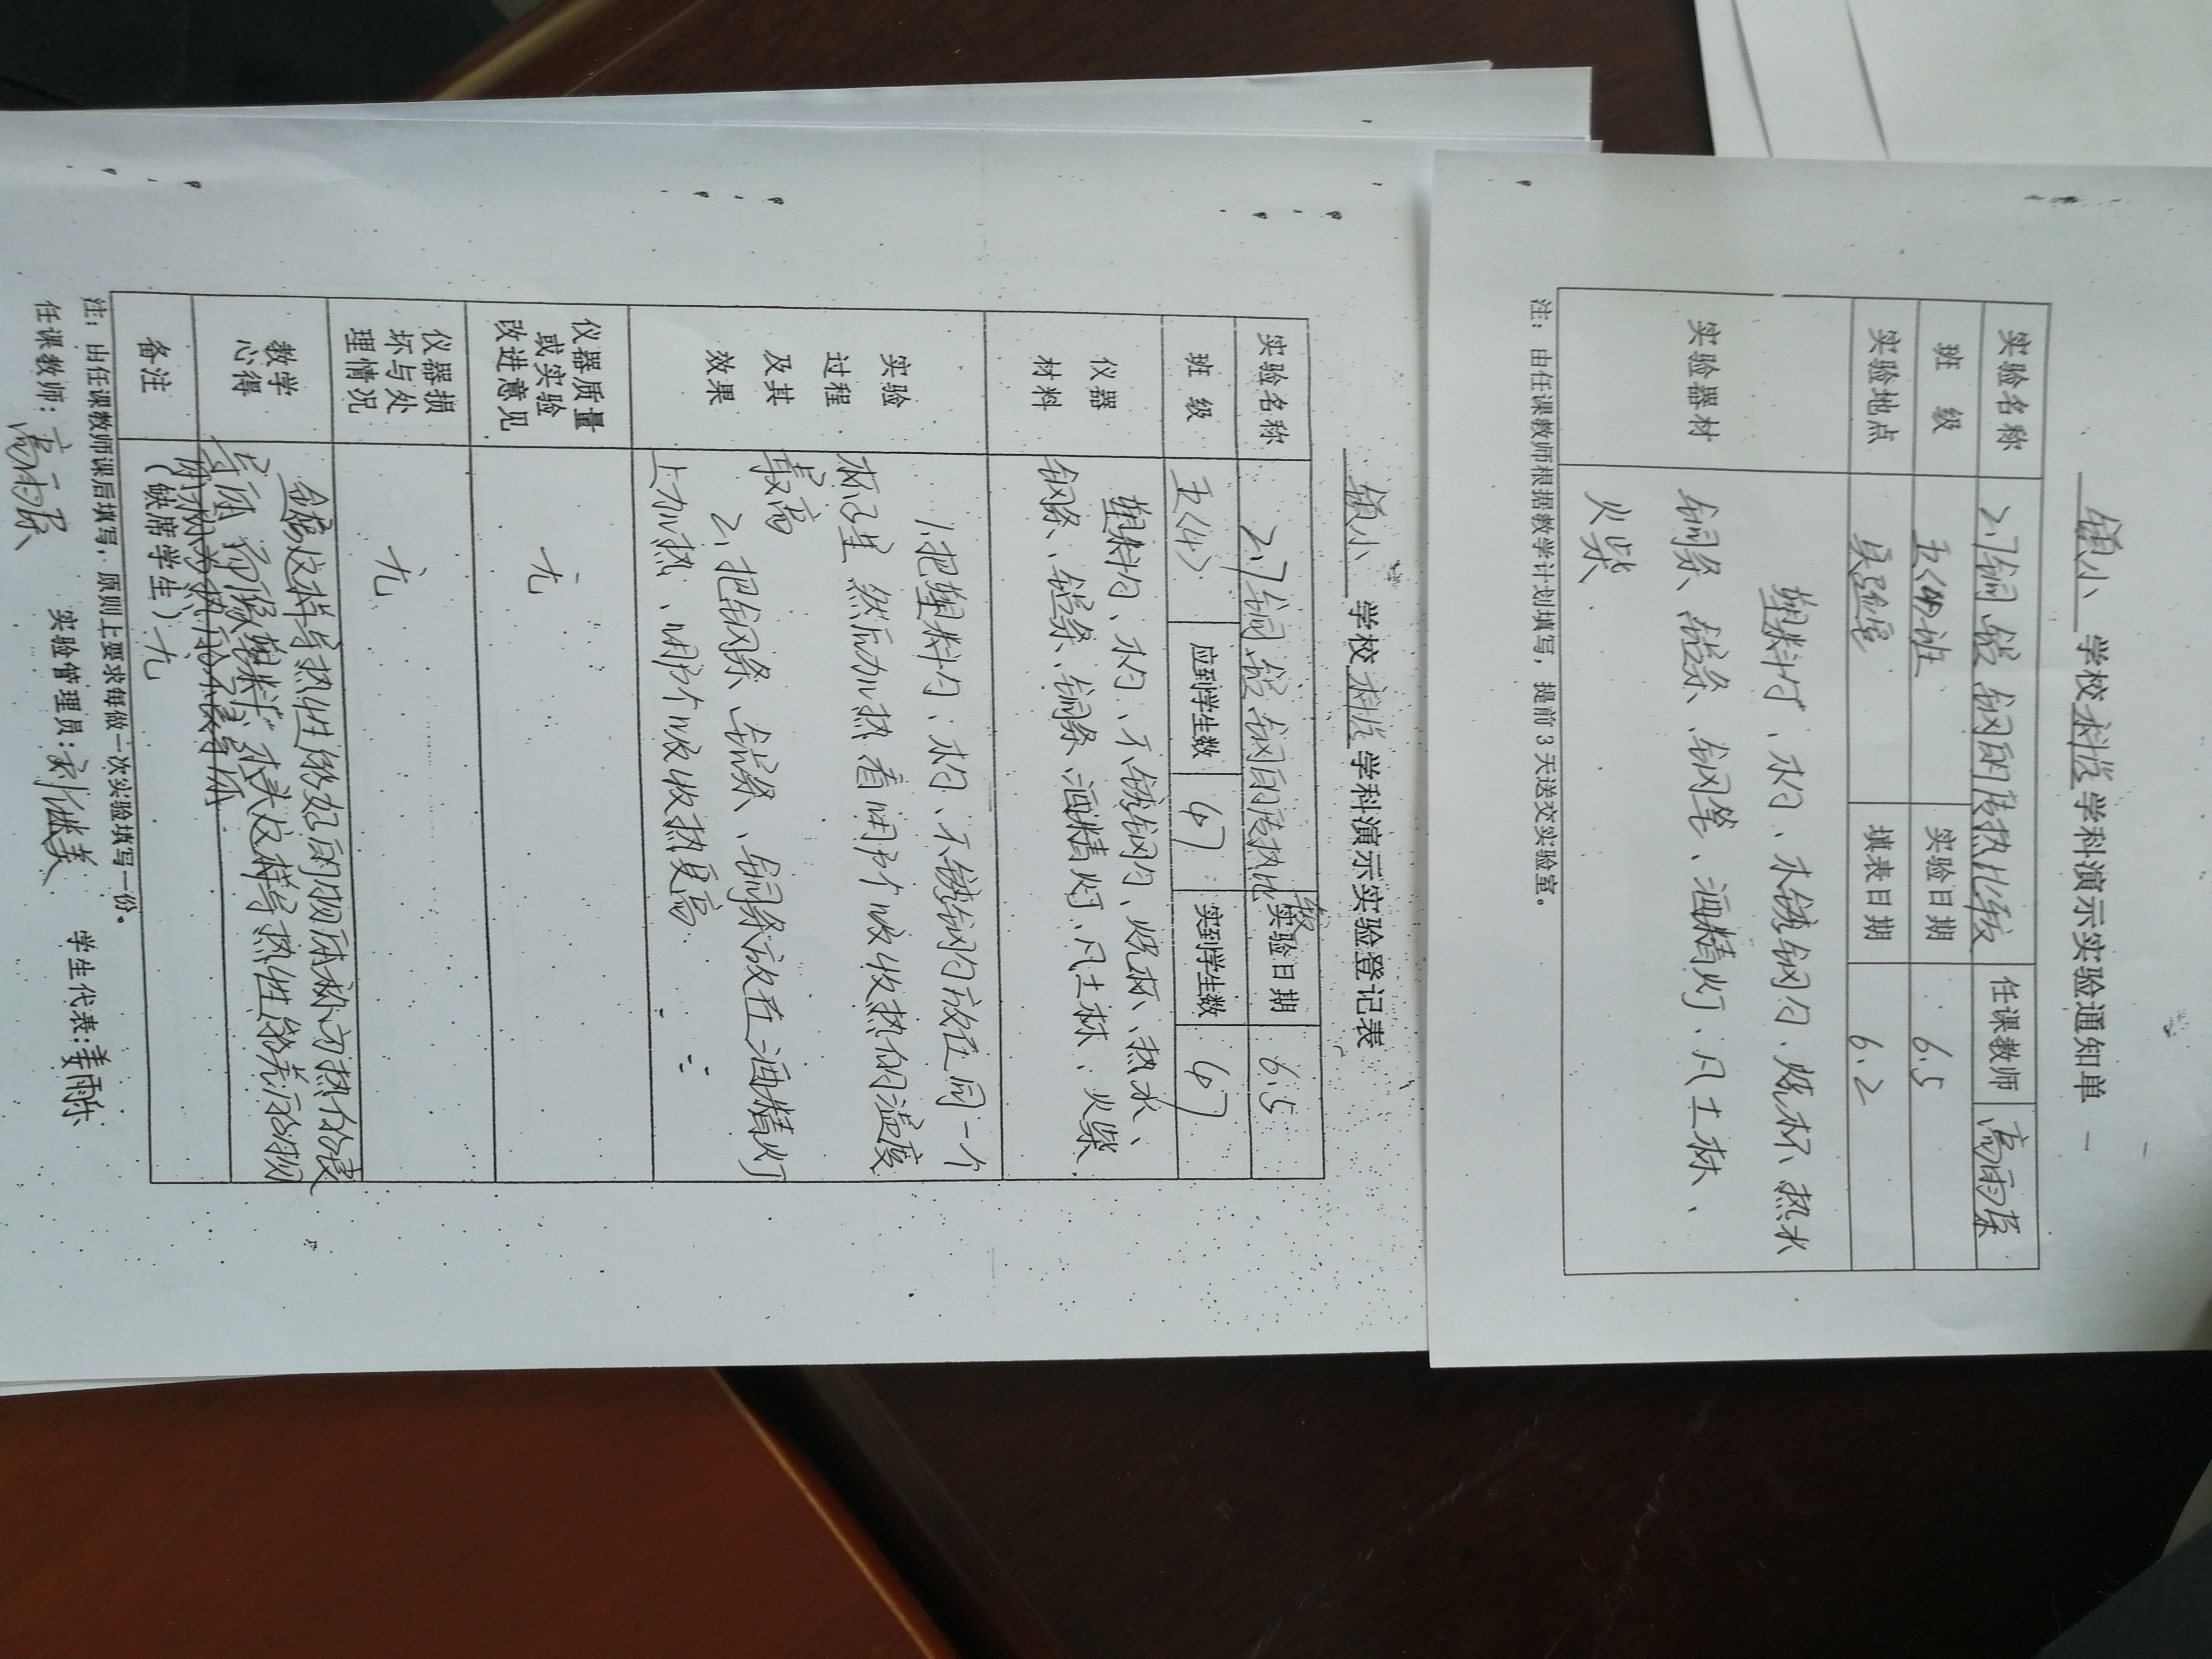 镇小 学校 科学 学科演示实验通知单
实验名称 2.7铜 铝 钢的传热比较 任课教师 高雨
班 级 五(4)班 实验日期 6.5
实验地点 实验室 填表日期 6.2
实验器材 塑料勺、木勺、不锈钢勺、烧杯、热水
铜条、铝条、钢笔、酒精灯、凡士林、
火柴
注:由任课教师根据教学计划填写,提前3天送交实验室。
镇小 学校 科学 学科演示实验登记表
实验名称 2.7铜 铝 钢的传热比较 实验日期 6.5
班 级 五(4) 应到学生数 67 实到学生数 67
仪器材料 塑料勺、木勺、不锈钢勺、烧杯、热水、
钢条、铝条、铜条、酒精灯、凡士林、火柴
实验过程及其效果 1.把塑料勺、木勺、不锈钢勺放在同一个
杯子里 然后加热 看哪个吸收热的温度
最高
2.把钢条、铝条、铜条放在酒精灯
上加热、哪个吸收热更高.
仪器质量或实验改进意见 无
仪器损坏与处理情况 无
教学心得 金属这样导热性能好的物质称为热的良
导体 而像塑料 木头这样导热性能差的物
备注 (缺席学生)无
注:由任课教师课后填写,原则上要求每做一次实验填写一份。
任课教师:高雨 实验管理员: 学生代表:姜雨